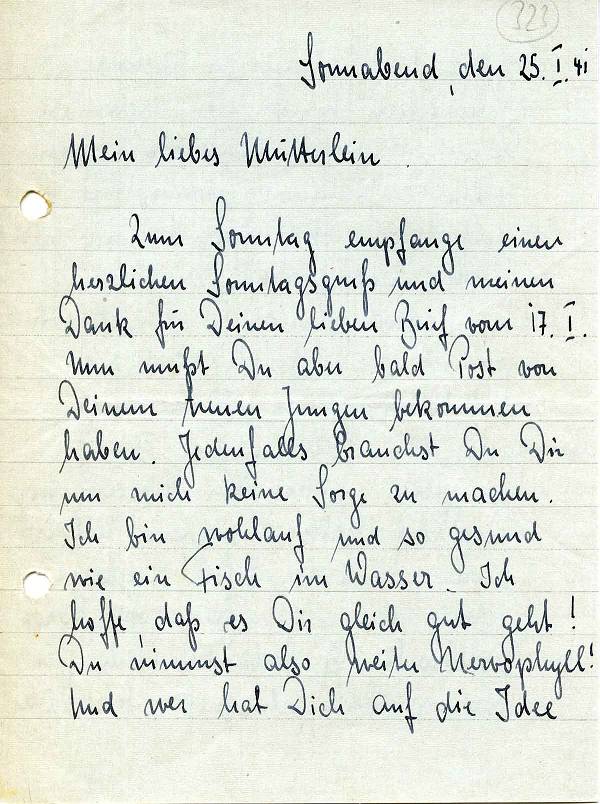 323
Sonnabend, den 25. I. 41
Mein liebes Mütterlein.
Zum Sonntag empfange einen
herzlichen Sonntagsgruß und meinen
Dank für Deinen lieben Brief vom 17. I.
Nun mußt Du aber bald Post von
Deinem treuen Jungen bekommen
haben. Jedenfalls brauchst Du Dir
um mich keine Sorge zu machen.
Ich bin wohlauf und so gesund
wie ein Fisch im Wasser. Ich
hoffe, daß es Dir gleich gut geht!
Du nimmst also weiter Nervophyll!
Und wer hat Dich auf die Idee